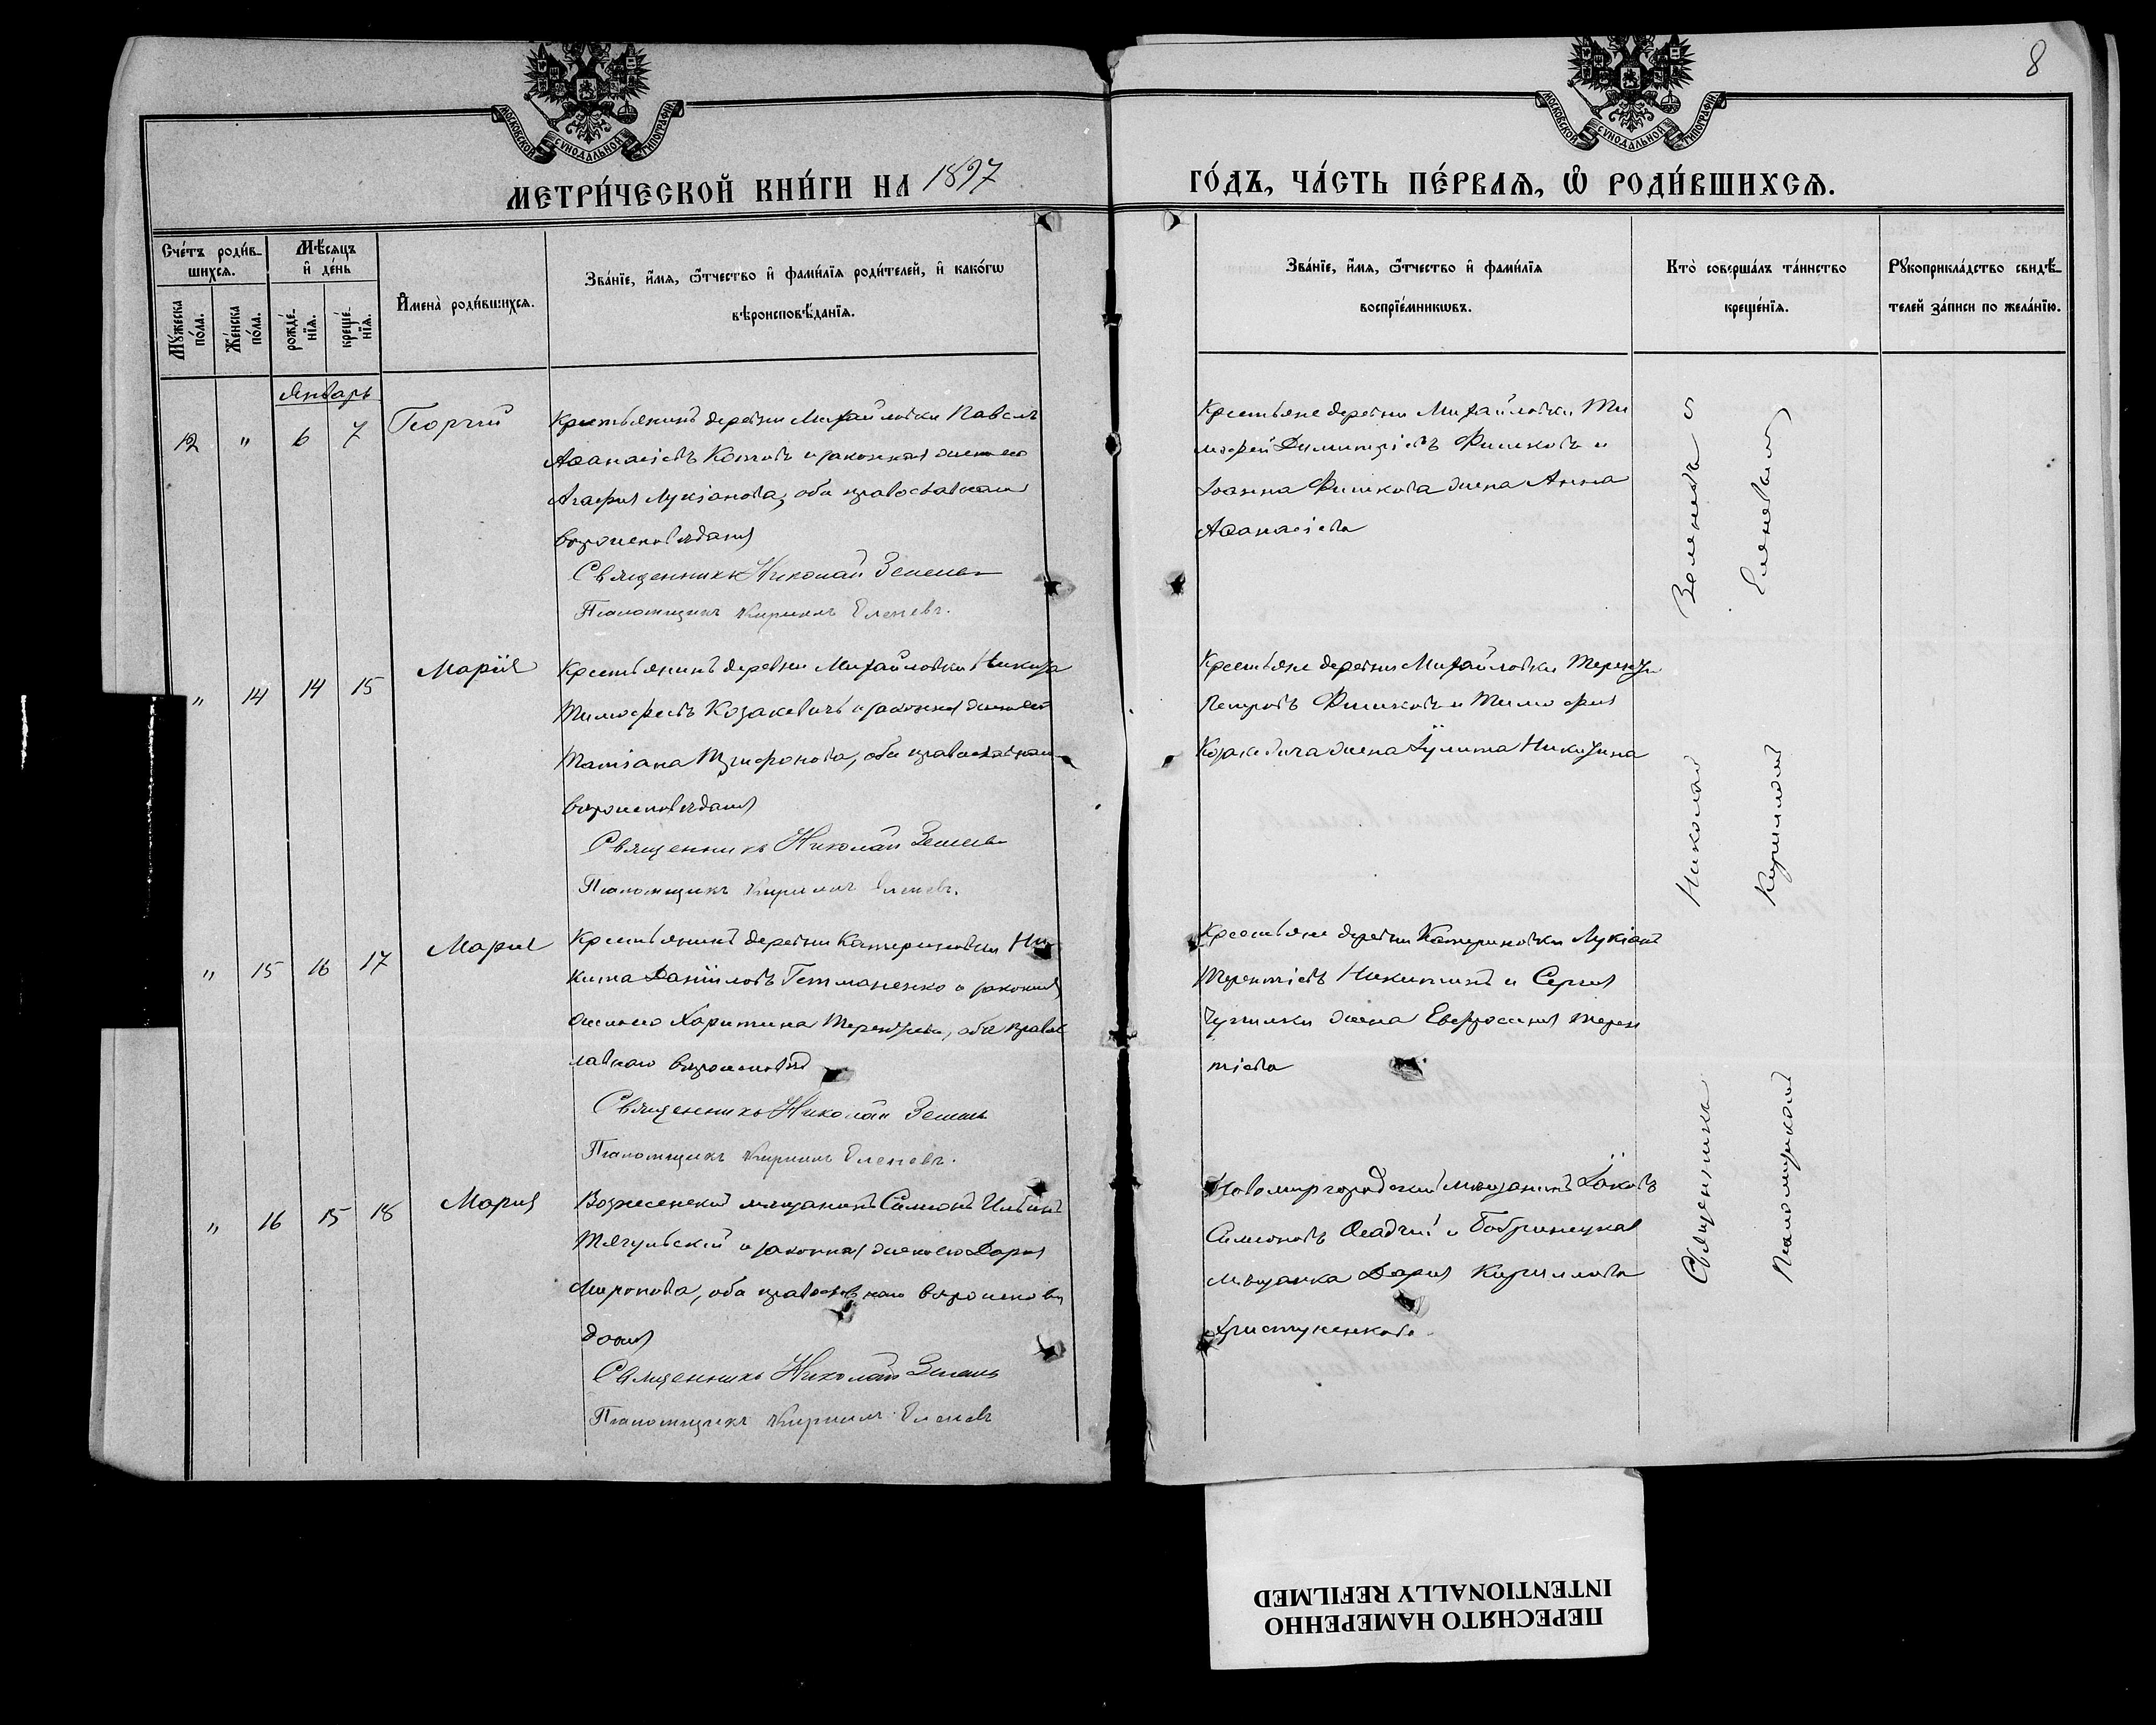 8
МОСКОВСКОЙ СУНОДАЛЬНОЙ ТИПОГРАФІИ
МОСКОВСКОЙ СУНОДАЛЬНОЙ ТИПОГРАФІИ
МЕТРИ́ЧЕСКОЙ КНИ́ГИ НА 1897
ГО́ДЪ, ЧА́СТЬ ПЕ́РВАѦ, Ѡ҆ РОДИ́ВШИХСѦ.
Сче́тъ роди́в-
шихсѧ.
Мꙋ́жеска по́ла.
Же́нска по́ла.
Мѣ́сѧцъ
и҆ де́нь
рожде́-
нїѧ.
креще́-
нїѧ.
И҆мена̀ роди́вшихсѧ.
Зва́нїе, и҆́мѧ, ѻ҆́тчество и҆ фами́лїѧ роди́телей, и҆ како́гѡ
вѣроисповѣ́данїѧ.
Зва́нїе, и҆́мѧ, ѻ҆́тчество и҆ фами́лїѧ
воспрїе́мникѡвъ.
Кто̀ соверша́лъ та́инство
креще́нїѧ.
Рꙋкоприкла́дство свидѣ́-
телей за́писи по жела́нїю.
Январь
12 " 6 7 Георгій
Крестьянинъ деревни Михайловки Павелъ
Аѳанасіевъ и законная жена его
Агафія Лукіанова, оба православнаго
вѣроисповѣданія
Священникъ Николай
Псаломщикъ Кириллъ Еленевъ.
Крестьяне деревни Михайловки Ти
мофей Димитріевъ Фишковъ и
Іоанна Фишкова жена Анна
Аѳанасіева
" 14 14 15 Марія
Крестьянинъ деревни Михайловки Никита
Тимофеевъ Козакевичъ и законная жена его
Татіана Трифонова, оба православнаго
вѣроисповѣданія
Священникъ Николай
Псаломщикъ Кириллъ Еленевъ.
Крестьяне деревни Михайловки Терентій
Петровъ Фишковъ и Тимофея
Козакевича жена Іулита Никитина
" 15 16 17 Марія
Крестьянинъ деревни Катериновки Ни-
кита Даніиловъ Гетманенко и законная
жена его Харитина Терентьева, оба правос
лавнаго вѣроисповѣд
Священникъ Николай
Псаломщикъ Кириллъ Еленевъ.
Крестьяне деревни Катериновки Лукіанъ
Терентіевъ Никитинъ и Сергія
жена Евфросинія Терен
тіева
" 16 15 18 Марія
Вознесенскій мѣщанинъ Симеонъ Ильинъ
Тягульскій и законная жена его Дарія
Миронова, оба православнаго вѣроисповѣ
данія
Священникъ Николай
Псаломщикъ Кириллъ Еленевъ
Новомиргородскій мѣщанинъ Іаковъ
Симеоновъ Осадчій и Бобринецкая
мѣщанка Дарія Кириллова
Священникъ Николай
Псаломщикомъ Кирилломъ Еленевымъ
ПЕРЕСНЯТО НАМЕРЕННО
INTENTIONALLY REFILMED